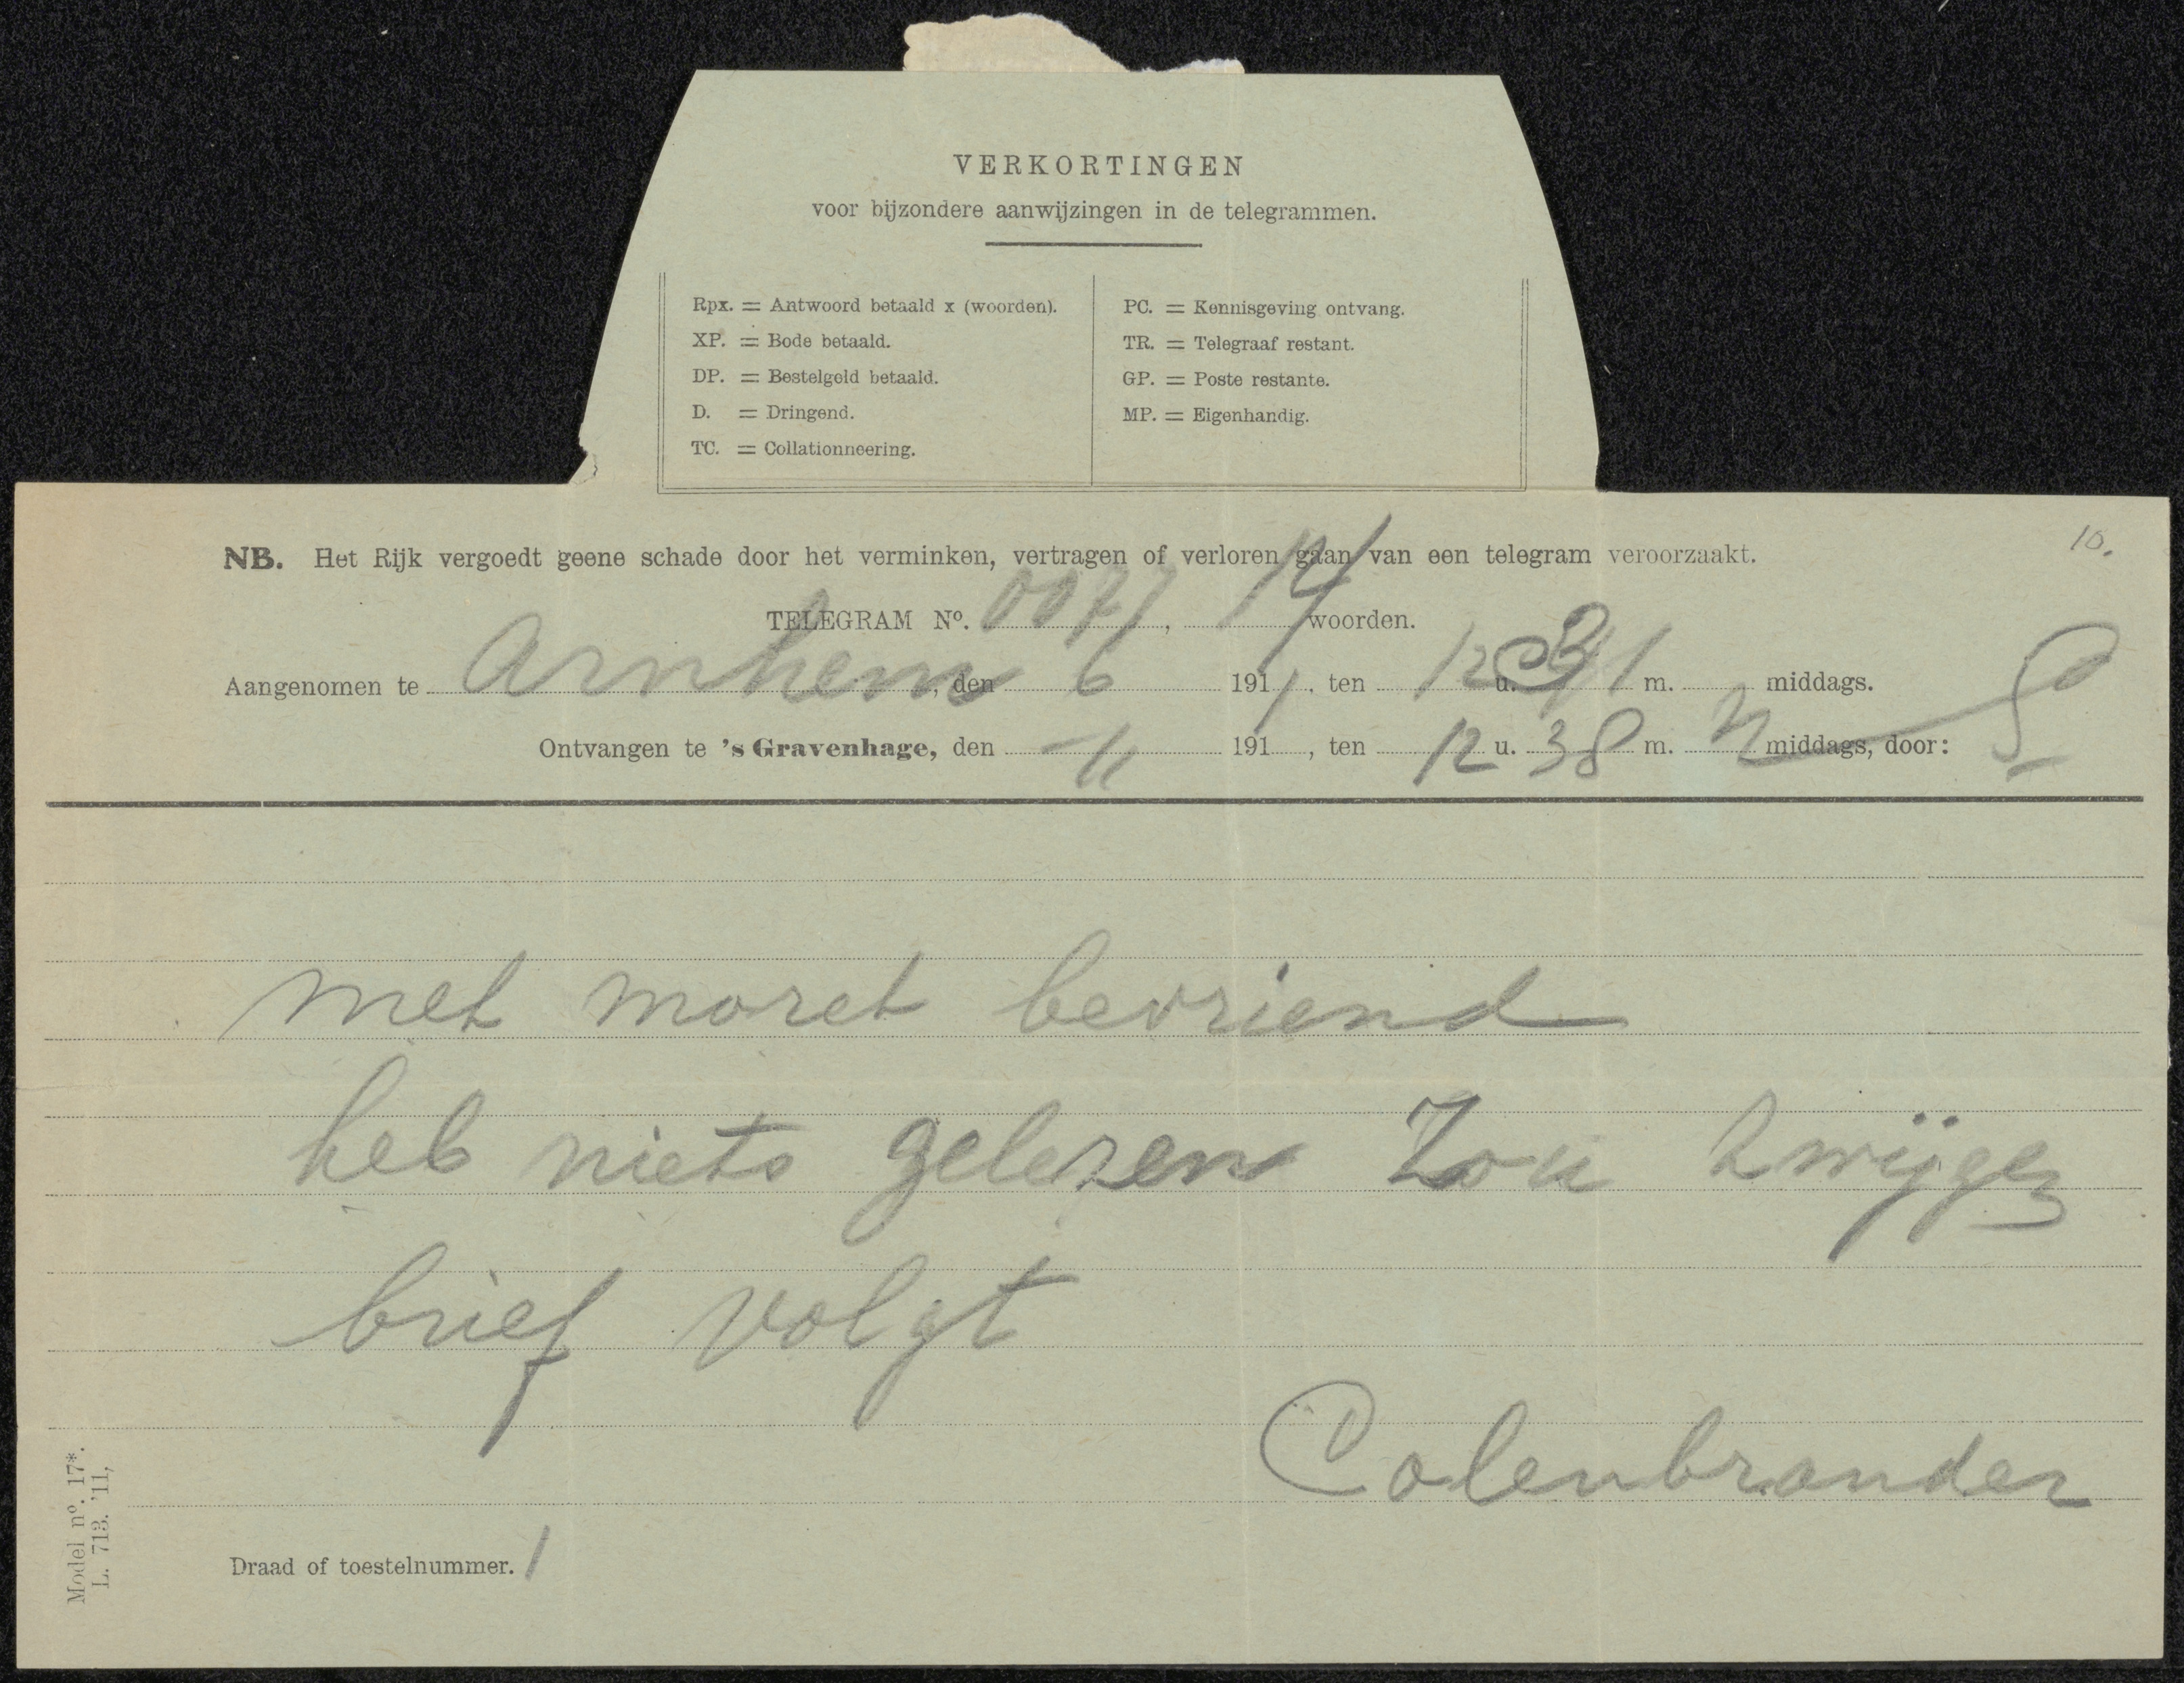 VERKORTINGEN
voor bijzondere aanwijzingen in de telegrammen.
Rpx. = Antwoord betaald x (woorden).
XP. = Bode betaald.
DP. = Bestelgeld betaald.
D. = Dringend.
TC. = Collationneering.
PC. = Kennisgeving ontvang.
TR. = Telegraaf restant.
GP. = Poste restante.
MP. = Eigenhandig.
10.
NB. Het Rijk vergoedt geene schade door het verminken, vertragen of verloren gaan van een telegram veroorzaakt.
TELEGRAM Nº. 0071, 14 woorden.
Aangenomen te Arnhem, den 6 1911, ten 12 u. m. middags.
Ontvangen te 's Gravenhage, den 191 , ten 12 u. 38 m. N middags, door:
met moret bevriend
heb niets gelezen Zou zwijgen
brief volgt
Colenbrander
Draad of toestelnummer. 1
Model nº. 17*.
L. 713. '11,